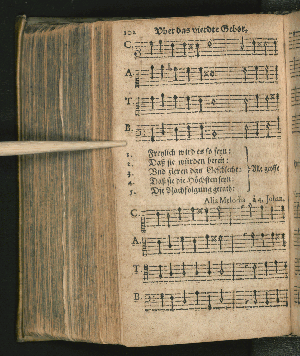 102 Vber das vierdte Gebot.
C.
A.
T.
B.
1. Freylich wird es so seyn:
2. Daß sie würden bereit:
3. Und zieren das Geschlecht:
4. Daß sie die Höchsten seyn:
5. Die Nachfolgung gerad:
Alia Melodia à 4. Johan.
C.
A.
T.
B.